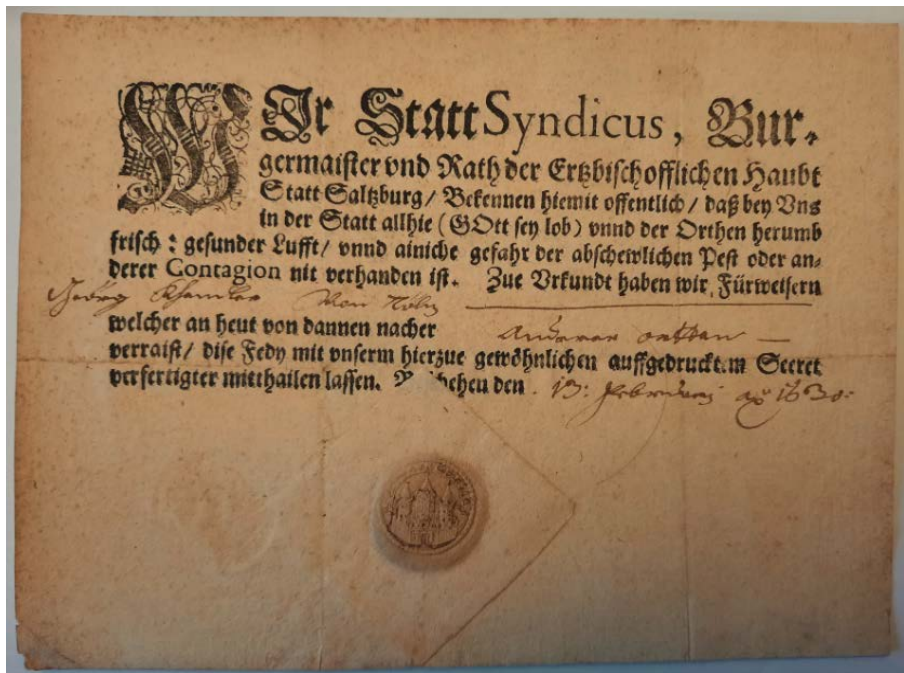 WIr Statt Syndicus, Bur-
germaister vnd Rath der Ertzbischofflichen Haubt
Statt Saltzburg/ Bekennen hiemit offentlich/ daß bey Vns
in der Statt allhie (GOtt sey lob) vnnd der Orthen herumb
frisch : gesunder Lufft/ vnnd ainiche gefahr der abschewlichen Pest oder an-
derer Contagion nit verhanden ist. Zue Vrkundt haben wir, Fürweisern
Georg Von
welcher an heut von dannen nacher anderer orthen
verraist/ dise Fedy mit vnserm hierzue gewöhnlichen auffgedrucktem Secret
verfertigter mitthailen lassen. den 13: Februarij aº 1630: